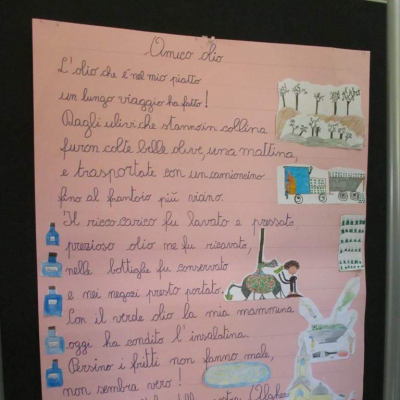 Amico olio
L'olio che è nel mio piatto
un lungo viaggio ha fatto!
Dagli ulivi che stanno in collina
furon colte belle olive, una mattina,
e trasportate con un camioncino
fino al frantoio più vicino.
Il ricco carico fu lavato e pressato
prezioso olio ne fu ricavato,
nelle bottiglie fu conservato
e nei negozi presto portato.
Con il verde olio la mia mammina
oggi ha condito l'insalatina.
Persino i fritti non fanno male,
non sembra vero!